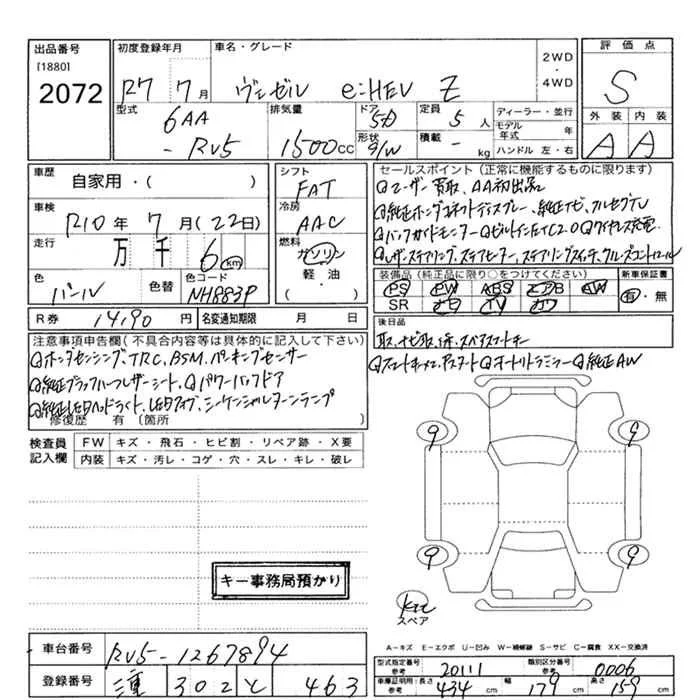 出品番号 初度登録年月 車名・グレード 2WD・4WD 評価点
[1880]
2072 R7 7月 ヴェゼル e:HEV Z S
型式 6AA - RV5 排気量 1500cc ドア 5D 定員 5人 ディーラー・並行
形状 S/W 積載 - kg モデル年式 年 ハンドル 左・右
外装 内装
A A
車歴 自家用・( ) シフト FAT
車検 R10年 7月(22日) 冷房 AAC
走行 万 千 6 km 燃料 ガソリン 軽油 ・( )
色 パール 色替 色コード NH883P
R券 14,190円 名変通知期限 月 日
セールスポイント(正常に機能するものに限ります)
◎ユーザー買取、AA初出品
◎純正ホンダコネクトディスプレー、純正ナビ、フルセグTV
◎バックガイドモニター◎ビルトインETC2.0◎ワイヤレス充電
◎レザーステアリング、ステアヒーター、ステアリングスイッチ、クルーズコントロール
装備品(純正品に限り○をつけてください) 新車保証書
PS PW ABS エアB AW 有・無
SR ナビ TV カワ
後日品
取、ナビ取、保、スペアスマートキー
◎スマートキー×2、アシスタート◎オートリトラミラー◎純正AW
注意事項申告欄(不具合内容等は具体的に記入して下さい)
◎ホンダセンシング、TRC、BSM、パーキングセンサー
◎純正ブラックハーフレザーシート、◎パワーバックドア
◎純正LEDヘッドライト、LEDフォグ、シーケンシャルターンランプ
修復歴 有(箇所 )
検査員記入欄 FW キズ・飛石・ヒビ割・リペア跡・X要
内装 キズ・汚レ・コゲ・穴・スレ・キレ・破レ
9 9
9 9
キー事務局預かり
スペア
A−キズ E−エクボ U−凹み W−補修跡 S−サビ C−腐食 XX−交換済
車台番号 RV5-1267894
登録番号 三重 302 と 463
型式指定番号 参考 20111 類別区分番号 参考 0006
車庫証明用:長さ 参考 434 cm 幅 179 cm 高さ 参考 159 cm